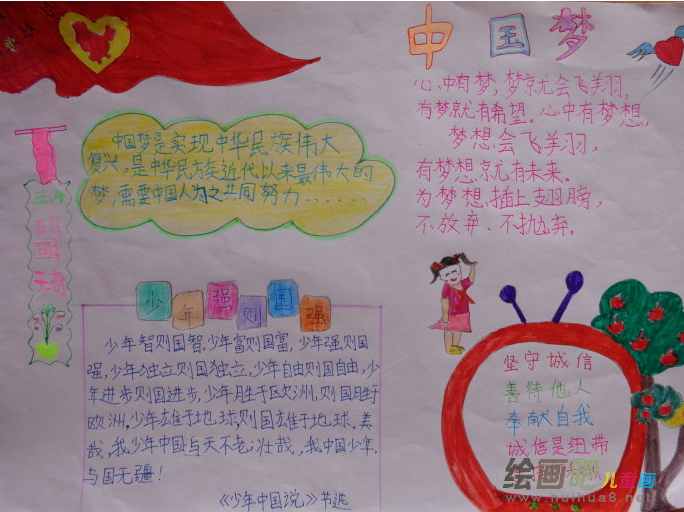 中国梦
心中有梦,梦就会飞翔,
有梦就有希望。心中有梦想,
梦想会飞翔,
有梦想,就有未来。
为梦想,插上翅膀,
不放弃、不抛弃。
中国梦是实现中华民族伟大
复兴,是中华民族近代以来最伟大的
梦,需要中国人为之共同努力......
少年强则国强
少年智则国智,少年富则国富,少年强则国
强,少年独立则国独立,少年自由则国自由,少
年进步则国进步,少年胜于欧洲,则国胜于
欧洲,少年雄于地球,则国雄于地球。美
哉,我少年中国与天不老,壮哉,我中国少年,
与国无疆!
《少年中国说》节选
坚守诚信
善待他人
奉献自我
诚信是纽带
绘画吧儿童画
www.huihua8.net